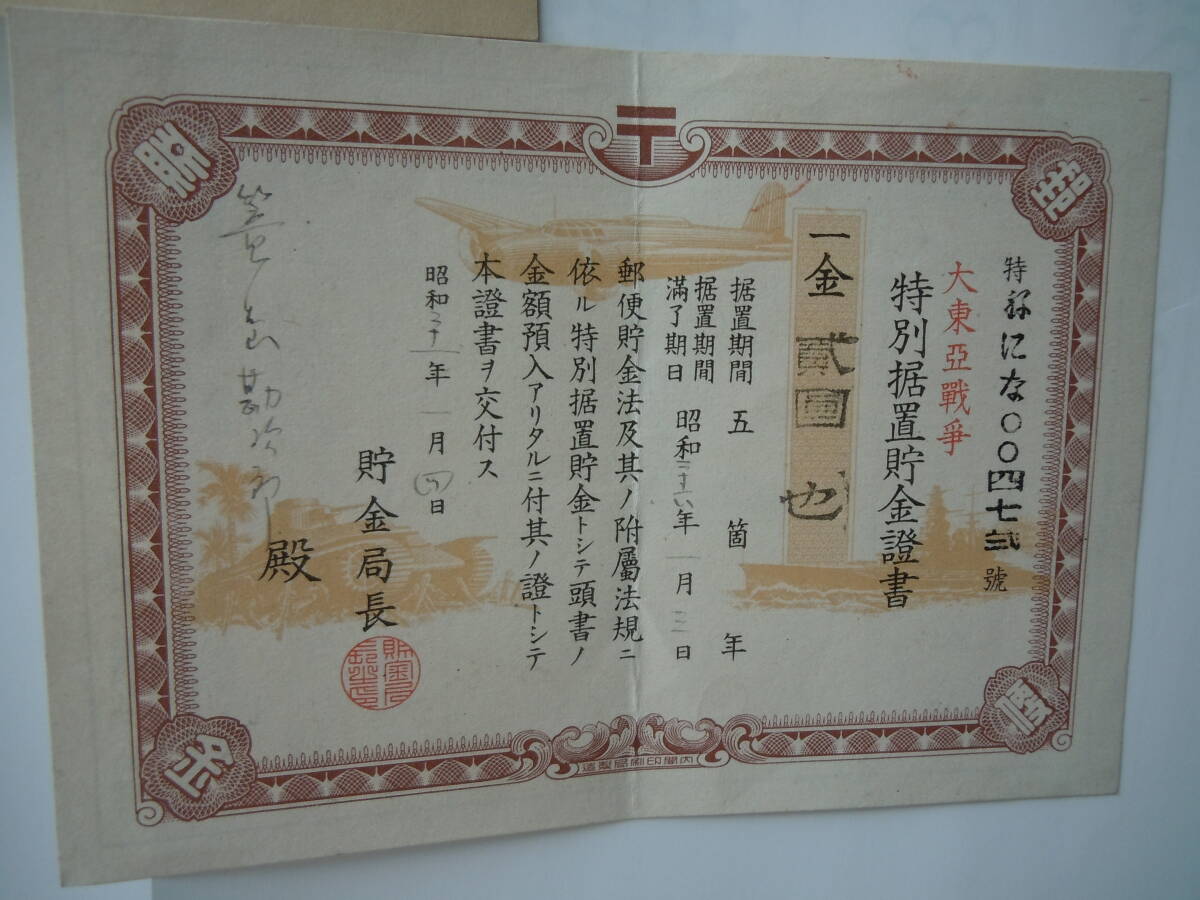 特 にな〇〇四七弐號
大東亞戰爭
特別据置貯金證書
一金貳圓也
据置期間 五箇年
据置期間
滿了期日 昭和二十六年一月三日
郵便貯金法及其ノ附屬法規ニ
依ル特別据置貯金トシテ頭書ノ
金額預入アリタルニ付其ノ證トシテ
本證書ヲ交付ス
昭和二十一年一月四日
貯金局長
勘次郎 殿
〒
內閣印刷局製造